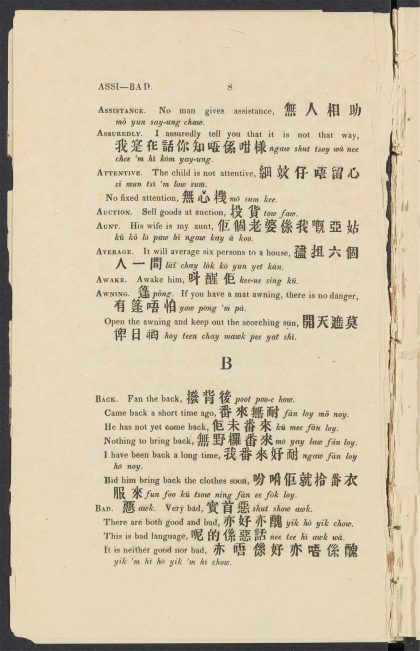 ASSI—BAD. 8
ASSISTANCE. No man gives assistance, 無人相助
mō yun say-ung chaw.
ASSUREDLY. I assuredly tell you that it is not that way,
我寔在話你知唔係咁様 ngaw shut tsoy wá nee
chee 'm hi kōm yay-ung.
ATTENTIVE. The child is not attentive, 細蚊仔唔留心
si mun tsi 'm low sum.
No fixed attention, 無心機 mō sum kee.
AUCTION. Sell goods at auction, 投貨 tow faw.
AUNT. His wife is my aunt, 佢個老婆係我嘅亞姑
kū kō lo paw hi ngaw kay á koo.
AVERAGE. It will average six persons to a house, 扭六個
人一間 lāi chay lōk kō yun yet kán.
AWAKE. Awake him, 呌醒佢 kee-ue sing kū.
AWNING. 篷 pōng. If you have a mat awning, there is no danger,
有篷唔怕 yow pōng 'm pá.
Open the awning and keep out the scorching sun, 開天遮莫
俾日 hoy teen chay mawk pee yat shi.
B
BACK. Fan the back, 撥背後 poot poo-e how.
Came back a short time ago, 番來無耐 fán loy mō noy.
He has not yet come back, 佢未番來 kū mee fán loy.
Nothing to bring back, 無野攞番來 mō yay law fán loy.
I have been back a long time, 我番來好耐 ngaw fán loy
hō noy.
Bid him bring back the clothes soon, 吩咐佢就拾番衣
服來 fun foo kū tsow ning fán ee fok loy.
BAD. 惡 awk. Very bad, 實首惡 shut show awk.
There are both good and bad, 亦好亦醜 yik hō yik chow.
This is bad language, 呢的係惡話 nee tee hi awk wá.
It is neither good nor bad, 亦唔係好亦唔係醜
yik 'm hi ho yik 'm hi chow.